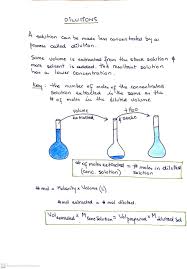 DILUTIONS
A solution can be made less concentrated by a
process called dilution.
Some volume is extracted from the stock solution &
more solvent is added. The resultant solution
has a lower concentration.
Key: the number of moles of the concentrated
solution extracted is the same as the
# of moles in the diluted volume
volume
extracted
# of moles extracted = # moles in diluted
(conc. solution) solution
# mol = Molarity x Volume (L)
# mol extracted = # mol diluted
Vol extracted x M conc solution = Vol prepared x M diluted sol